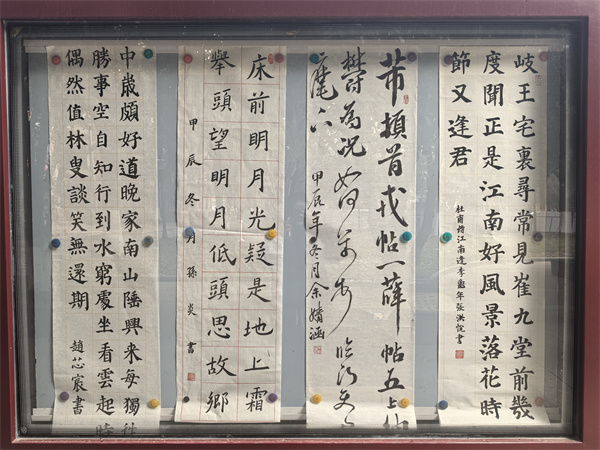 岐王宅裏尋常見崔九堂前幾
度聞正是江南好風景落花時
節又逢君
杜甫詩江南逢李龜年張洪悅書
芾頓首戎帖一薛帖五上納
欝為況如何
甲辰年冬月余婧涵
床前明月光疑是地上霜
舉頭望明月低頭思故鄉
甲辰冬月孫炎書
中歲頗好道晚家南山陲興來每獨往
勝事空自知行到水窮處坐看雲起時
偶然值林叟談笑無還期
趙芯宸書